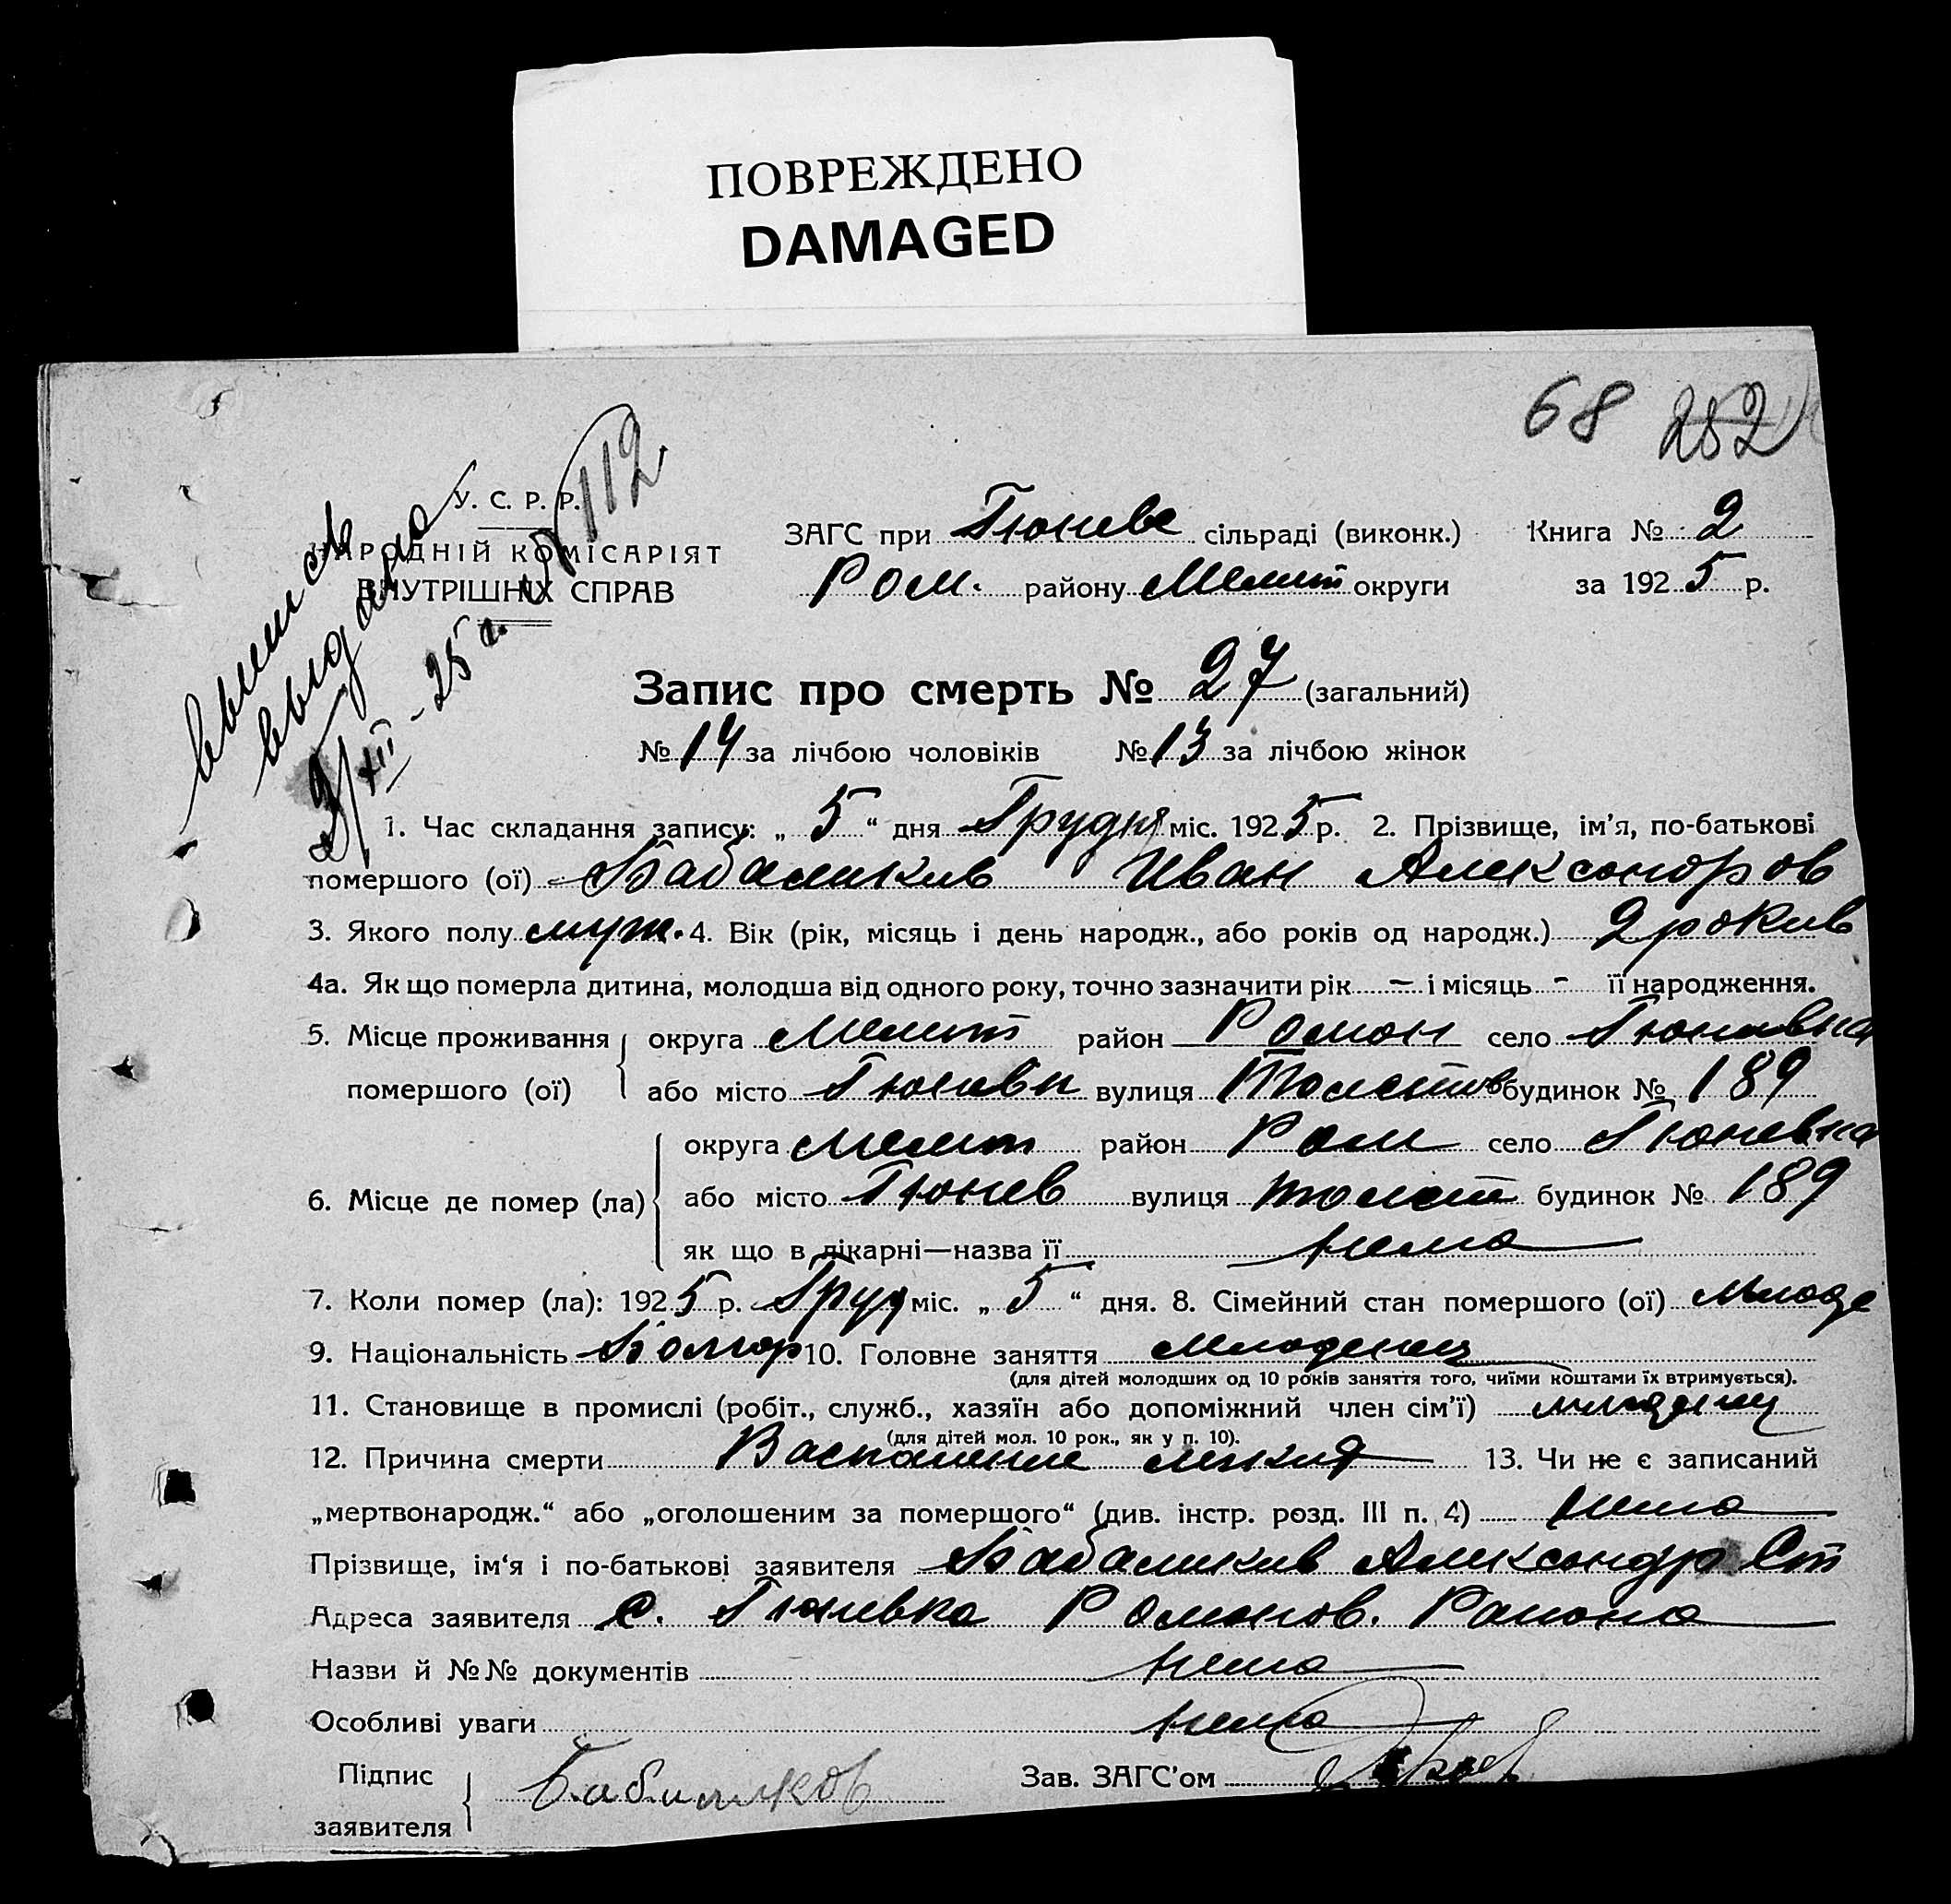 ПОВРЕЖДЕНО
DAMAGED
68 252
У. С. Р. Р.
НАРОДНІЙ КОМІСАРІЯТ
ВНУТРІШНІХ СПРАВ
выпись
выдана
2/XII - 25 г. № 112
ЗАГС при Тюневс сільраді (виконк.) Книга № 2
Ром. району Мелит округи за 1925 р.
Запис про смерть № 27 (загальний)
№ 14 за лічбою чоловіків № 13 за лічбою жінок
1. Час складання запису: „ 5 “ дня Грудня міс. 1925 р. 2. Прізвище, ім'я, по-батькові
помершого (ої) Бабаликив Иван Александров
3. Якого полу муж. 4. Вік (рік, місяць і день народж., або років од народж.) 2 рокив
4а. Як що померла дитина, молодша від одного року, точно зазначити рік – і місяць - її народження.
5. Місце проживання округа Мелит район Роман село Тюнивка
помершого (ої) або місто Тюневк вулиця Толстов будинок № 189
округа Мелит район Ром село Тюневка
6. Місце де помер (ла) або місто Тюнев вулиця толст будинок № 189
як що в лікарні—назва її нема
7. Коли помер (ла): 1925 р. Груд міс. „ 5 “ дня. 8. Сімейний стан помершого (ої) младе
9. Національність Болгар 10. Головне заняття младенец
(для дітей молодших од 10 років заняття того, чиїми коштами їх втримується).
11. Становище в промислі (робіт., служб., хазяїн або допоміжний член сім'ї) младенец
(для дітей мол. 10 рок., як у п. 10).
12. Причина смерти Васпаление лехких 13. Чи не є записаний
„мертвонародж.“ або „оголошеним за помершого“ (див. інстр. розд. III п. 4) нема
Прізвище, ім'я і по-батькові заявителя Бабаликив Александр Ст
Адреса заявителя с. Тюневка Романов. Район
Назви й №№ документів нема
Особливі уваги нема
Підпис
заявителя Бабаликов Зав. ЗАГС'ом